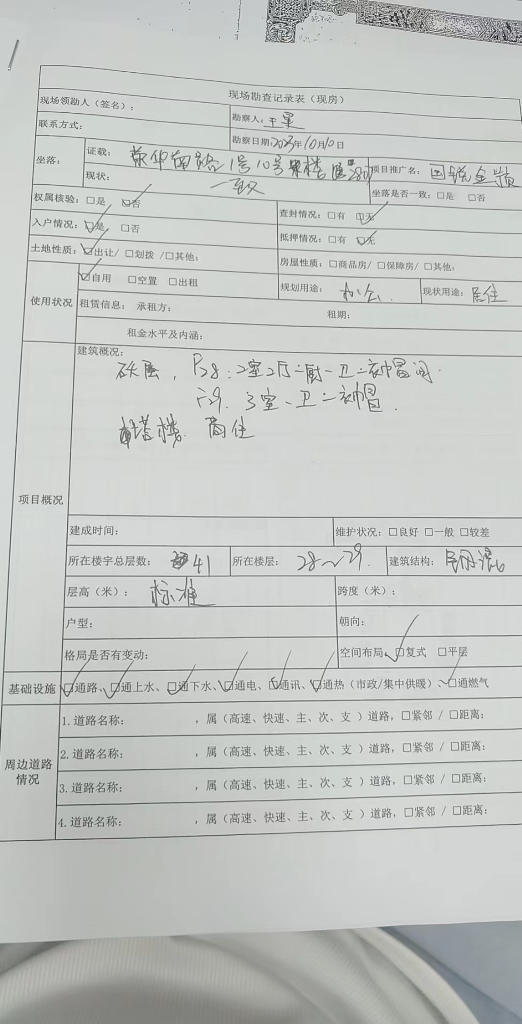 现场勘查记录表（现房）
现场领勘人（签名）： 勘察人：
联系方式： 勘察日期：2023年10月10日
坐落： 证载：荣华南路1号10号楼 项目推广名：国锐金
现状：一致 坐落是否一致：□是 □否
权属核验：□是 ☑否 查封情况：□有 ☑无
入户情况：☑是 □否 抵押情况：□有 ☑无
土地性质：☑出让/ □划拨 /□其他： 房屋性质：□商品房/ □保障房/ □其他：
使用状况 ☑自用 □空置 □出租 规划用途：办公 现状用途：居住
租赁信息：承租方： 租期：
租金水平及内涵：
项目概况 建筑概况：
跃层，F28：2室2厅一厨一卫一衣帽间
F29：3室一卫一衣帽
塔楼 商住
建成时间： 维护状况：□良好 □一般 □较差
所在楼宇总层数：41 所在楼层：28～29 建筑结构：钢混
层高（米）：标准 跨度（米）：
户型： 朝向：
格局是否有变动： 空间布局：☑复式 □平层
基础设施 ☑通路、☑通上水、☑通下水、☑通电、☑通讯、☑通热（市政/集中供暖）、☑通燃气
周边道路情况 1.道路名称： ，属（高速、快速、主、次、支 ）道路，□紧邻 / □距离：
2.道路名称： ，属（高速、快速、主、次、支 ）道路，□紧邻 / □距离：
3.道路名称： ，属（高速、快速、主、次、支 ）道路，□紧邻 / □距离：
4.道路名称： ，属（高速、快速、主、次、支 ）道路，□紧邻 / □距离：